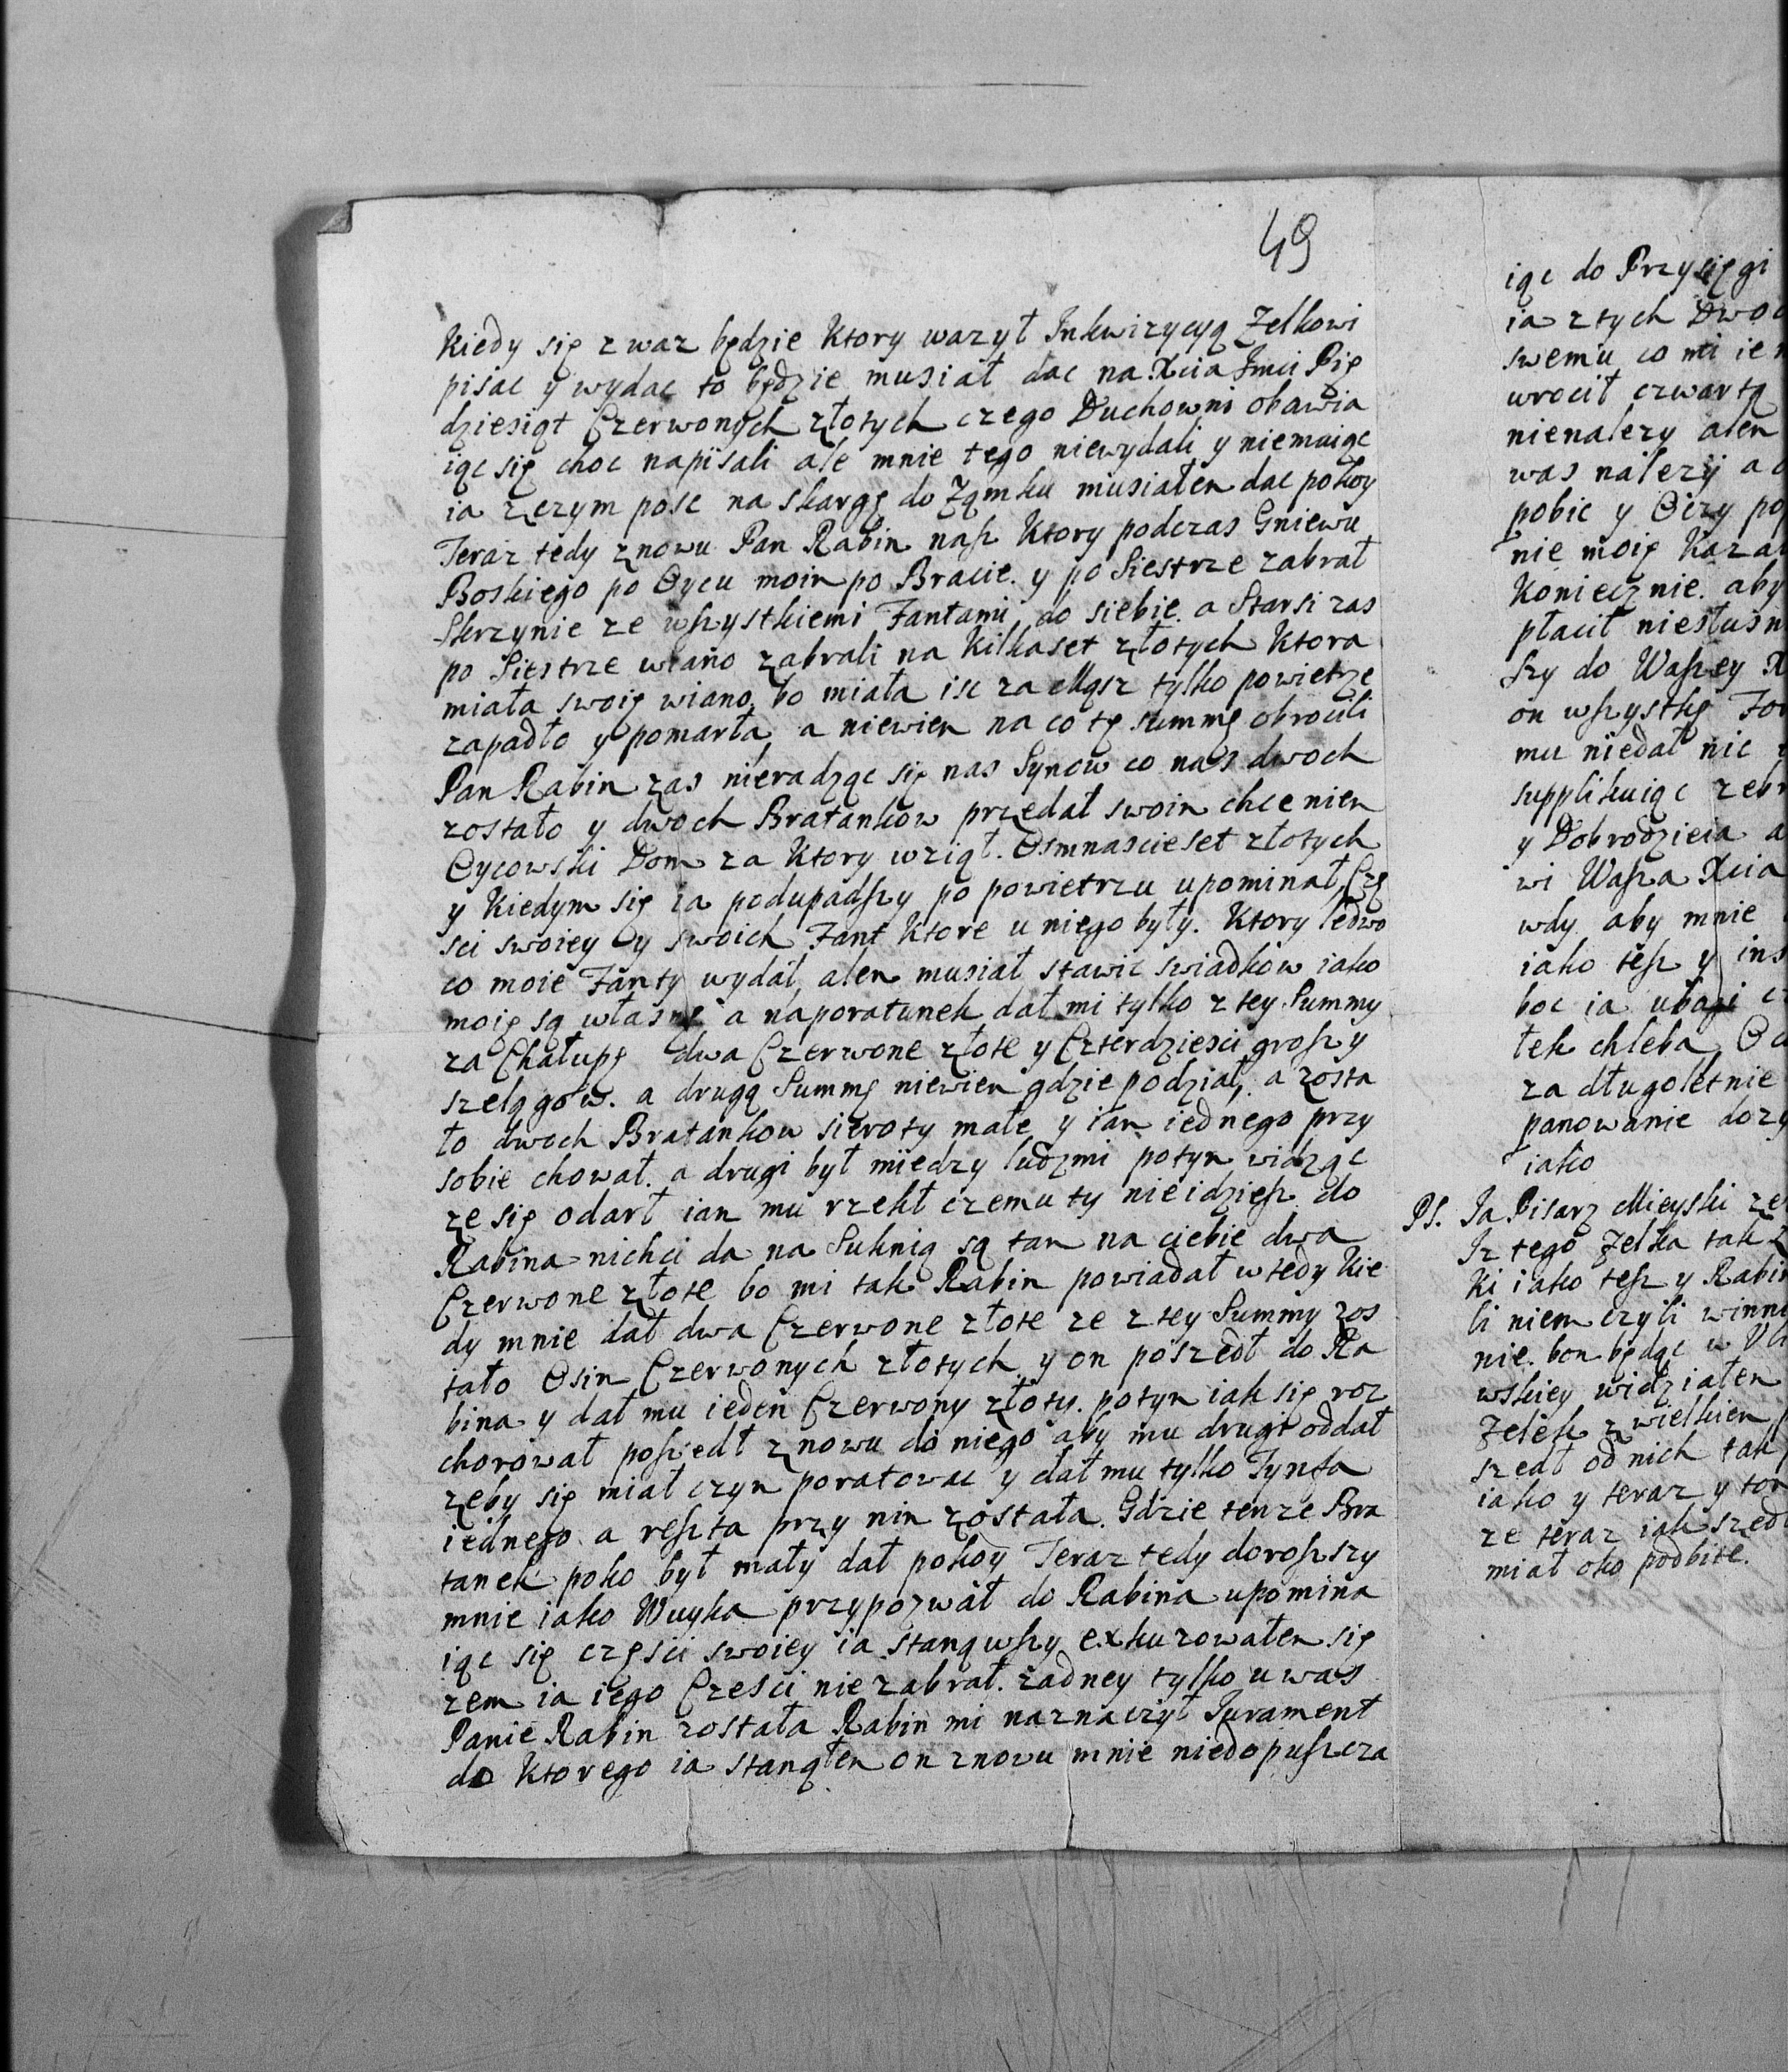 49
Kiedy się z waz będzie Ktory wazył Inkwizycyą Zelkowi
pisac y wydac to będzie musiał dac na Xcia Jmci Pię
dziesiąt Czerwonych złotych czego Duchowni obawia
iąc się choc napisali ale mnie tego niewydali y niemaiąc
ia zczym pojsc na skargę do Ząmku musiałem dac pokoy
Teraz tedy znowu Pan Rabin nasz Ktory podczas Gniewu
Boskiego po Oycu moim po Bracie. y po Siestrze zabrał
Skrzynie ze wszystkiemi Fantami do siebie. a Starsi zas
po Siestrze wiano zabrali na Kilkaset złotych Ktora
miała swoię wiano, bo miała isc za Mąsz tylko powietrze
zapadło y pomarła, a niewiem na co tę summę obrocili
Pan Rabin zas nieradząc się nas Synow co nas dwoch
zostało y dwoch Bratankow przedał swoim chceniem
Oycowski Dom za Ktory wziął. Osmnascieset złotych
y Kiedym się ia podupadszy po powietrzu upominał, Czę
sci swoiey y swoich Fant Ktore u niego były. Ktory ledwo
co moie Fanty wydał, alem musiał stawic swiadkow iako
moię są własne a naporatunek dał mi tylko z tey Summy
za Chałupę dwa Czerwone złote y Czterdziesci groszy
szelągow. a drugą Summę niewiem gdzie podział, a zosta
ło dwoch Bratankow sieroty małe y iam iednego przy
sobie chował. a drugi był miedzy ludzmi potym widząc
ze się odarł iam mu rzekł czemu ty nieidziesz do
Rabina nichci da na Suknią są tam na ciebie dwa
Czerwone złote bo mi tak Rabin powiadał wtedy Kie
dy mnie dał dwa Czerwone złote ze z tey Summy zos
tało Osim Czerwonych złotych y on poszedł do Ra
bina y dał mu ieden Czerwony złoty. potym iak się roz
chorował poszedł znowu do niego aby mu drugi oddał
zeby się miał czym poratowac y dał mu tylko Tynfa
iednego a reszta przy nim została. Gdzie tenze Bra
tanek poko był mały dał pokoy Teraz tedy doroszszy
mnie iako Wuyka przypozwał do Rabina upomina
iąc się częsci swoiey ia stanąwszy exkuzowałem się
zem ia iego Czesci nie zabrał. żadney tylko u was
Panie Rabin została Rabin mi naznaczył Jurament
do Ktorego ia stanąłem on znowu mnie niedopuszcza
iąc do Przysięgi
ia z tych Dwo
swemu co mi ie
wrocił czwartą
nienalezy alem
was nalezy a
pobic y Oczy po
nię moię Kaza
Koniecznie. aby
płacił niesłusn
szy do Waszey X
on wszystkę
mu niedał nic
supplikuiąc zeb
y Dobrodzieia a
wi Wasza Xcia
wdy aby mnie
iako tesz y ins
boc ia ubogi
łek chleba
za długoletnie
panowanie dozy
iako
PS. Ja Pisarz Mieyski ze
Jz tego Zelka tak
Ki iako tesz y Rabi
li niem czyli winn
nie. bom będąc w
wskiey widziałem
Zelek z wielkiem
szedł od nich tak
iako y teraz y to
ze teraz iak szedł
miał oko podbite.